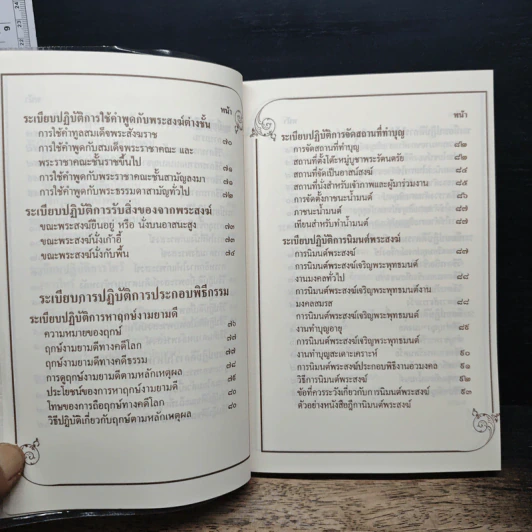 หน้า
ระเบียบปฏิบัติการใช้คำพูดกับพระสงฆ์ต่างชั้น
การใช้คำทูลสมเด็จพระสังฆราช ๗๐
การใช้คำพูดกับสมเด็จพระราชาคณะ และ
พระราชาคณะชั้นราชขึ้นไป ๗๑
การใช้คำพูดกับพระราชาคณะชั้นสามัญลงมา ๗๑
การใช้คำพูดกับพระธรรมดาสามัญทั่วไป ๗๑
ระเบียบปฏิบัติการรับสิ่งของจากพระสงฆ์
ขณะพระสงฆ์ยืนอยู่ หรือ นั่งบนอาสนะสูง ๗๓
ขณะพระสงฆ์นั่งเก้าอี้ ๗๓
ขณะพระสงฆ์นั่งกับพื้น ๗๔
ระเบียบการปฏิบัติการประกอบพิธีกรรม
ระเบียบปฏิบัติการหาฤกษ์งามยามดี
ความหมายของฤกษ์ ๗๖
ฤกษ์งามยามดีทางคติโลก ๗๖
ฤกษ์งามยามดีทางคติธรรม ๗๗
การดูฤกษ์งามยามดีตามหลักเหตุผล ๗๘
ประโยชน์ของการหาฤกษ์งามยามดี ๗๙
โทษของการถือฤกษ์ทางคติโลก ๘๐
วิธีปฏิบัติเกี่ยวกับฤกษ์ตามหลักเหตุผล ๘๐
หน้า
ระเบียบปฏิบัติการจัดสถานที่ทำบุญ
การจัดสถานที่ทำบุญ ๘๒
สถานที่ตั้งโต๊ะหมู่บูชาพระรัตนตรัย ๘๒
สถานที่จัดเป็นอาสน์สงฆ์ ๘๔
สถานที่นั่งสำหรับเจ้าภาพและผู้มาร่วมงาน ๘๕
การจัดตั้งภาชนะน้ำมนต์ ๘๖
ภาชนะน้ำมนต์ ๘๗
เทียนสำหรับทำน้ำมนต์ ๘๗
ระเบียบปฏิบัติการนิมนต์พระสงฆ์
การนิมนต์พระสงฆ์ ๘๗
การนิมนต์พระสงฆ์เจริญพระพุทธมนต์
งานมงคลทั่วไป ๘๘
การนิมนต์พระสงฆ์เจริญพระพุทธมนต์งาน
มงคลสมรส ๘๘
การนิมนต์พระสงฆ์เจริญพระพุทธมนต์
งานทำบุญอายุ ๘๙
การนิมนต์พระสงฆ์เจริญพระพุทธมนต์
งานทำบุญสะเดาะเคราะห์ ๙๐
การนิมนต์พระสงฆ์ประกอบพิธีงานอวมงคล ๙๑
วิธีการนิมนต์พระสงฆ์ ๙๒
ข้อที่ควรระวังเกี่ยวกับการนิมนต์พระสงฆ์ ๙๓
ตัวอย่างหนังสือฎีกานิมนต์พระสงฆ์